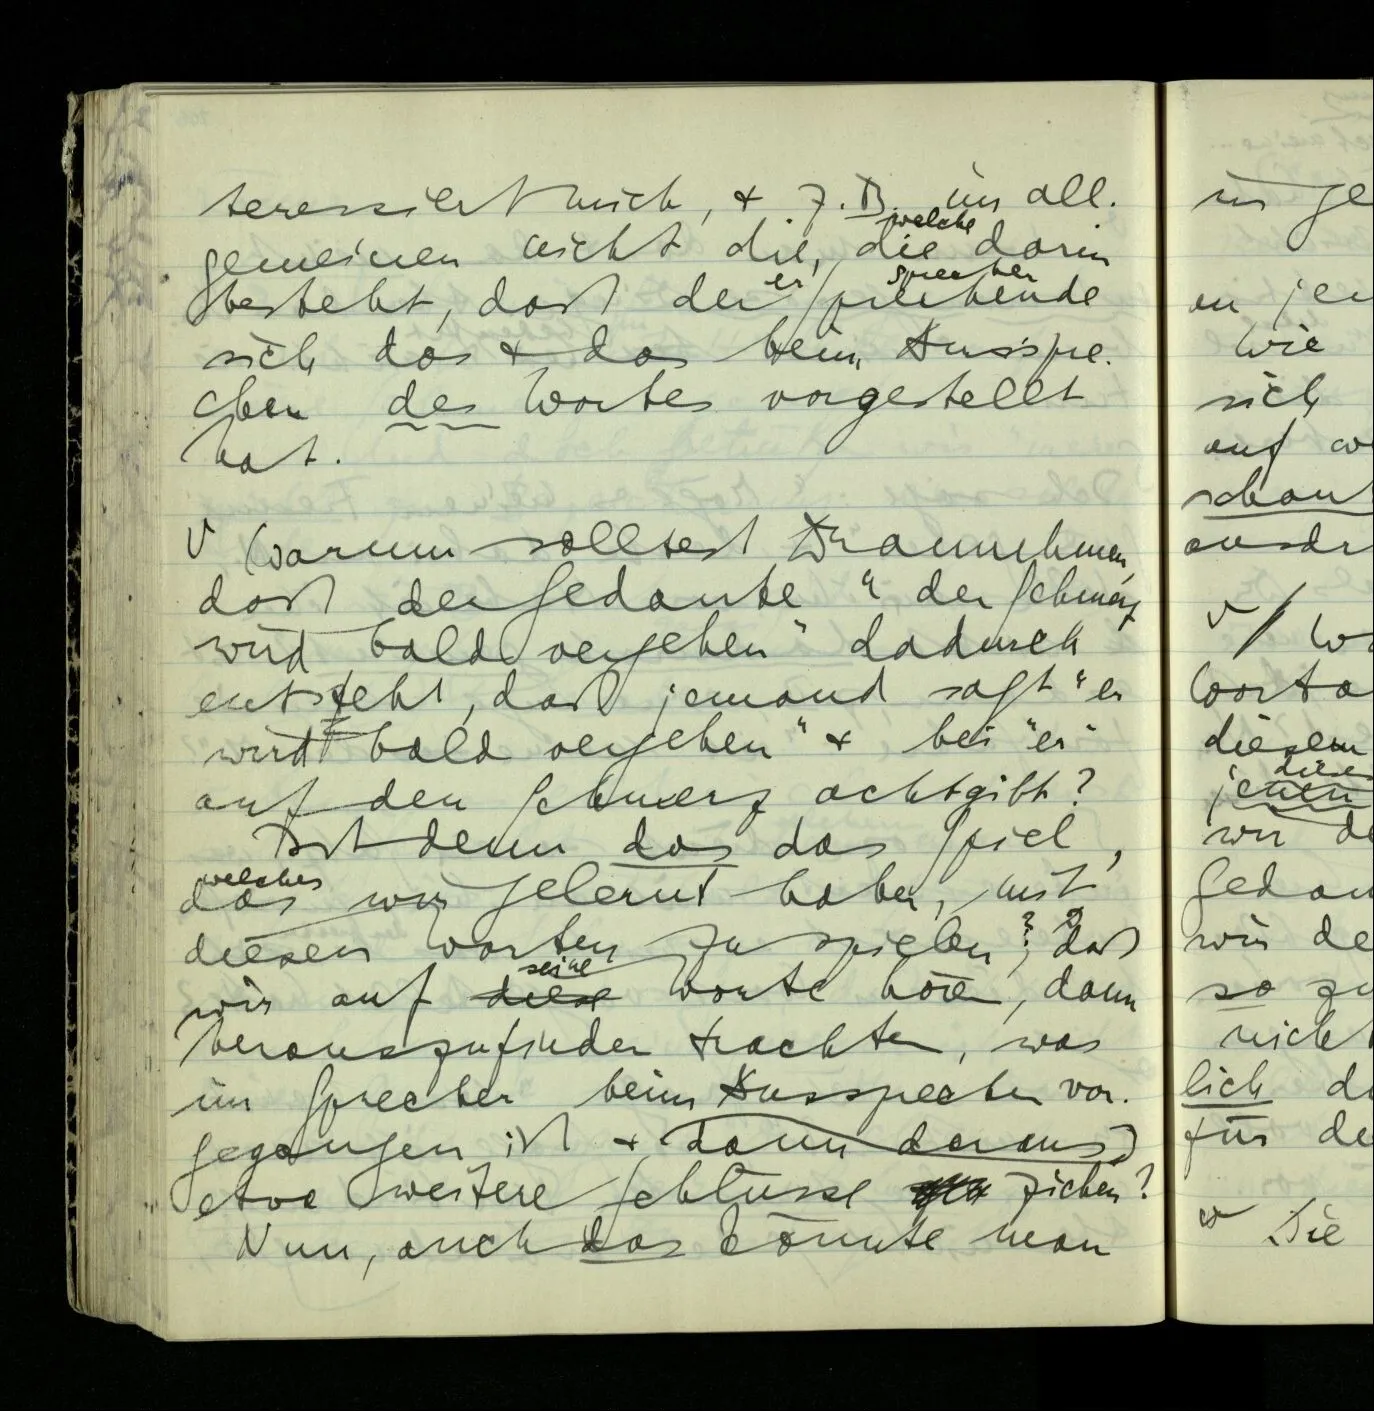 teressiert mich, & z.B. im all-
gemeinen nicht die, die welche darin
besteht, daß der er Sprechende Sprecher
sich das & das beim Ausspre-
chen des Wortes vorgestellt
hat.
V Warum solltest Du annehmen,
daß der Gedanke "der Schmerz
wird bald vergehen" dadurch
entsteht, daß jemand sagt "er
wird bald vergehen" & bei "er"
auf den Schmerz achtgibt?
Ist denn das das Spiel,
welches
das wir gelernt haben, mit
diesen Worten zu spielen?; daß
seine
wir auf diese Worte hören, dann
herauszufinden trachten, was
im Sprecher beim Aussprechen vor-
gegangen ist & dann daraus
etwa weitere Schlüsse ziehen?
Nun, auch das könnte man
in ge
an jen
Wie
sich
auf w
schaut
ausdr
V / Wa
Worta
diesem
diese
jenen
wir de
Gedan
wir de
so zu
nicht
lich d
für de
Die